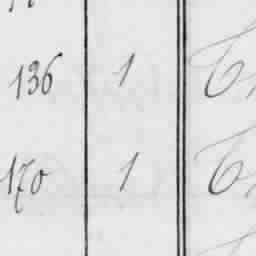 136 1
170 1